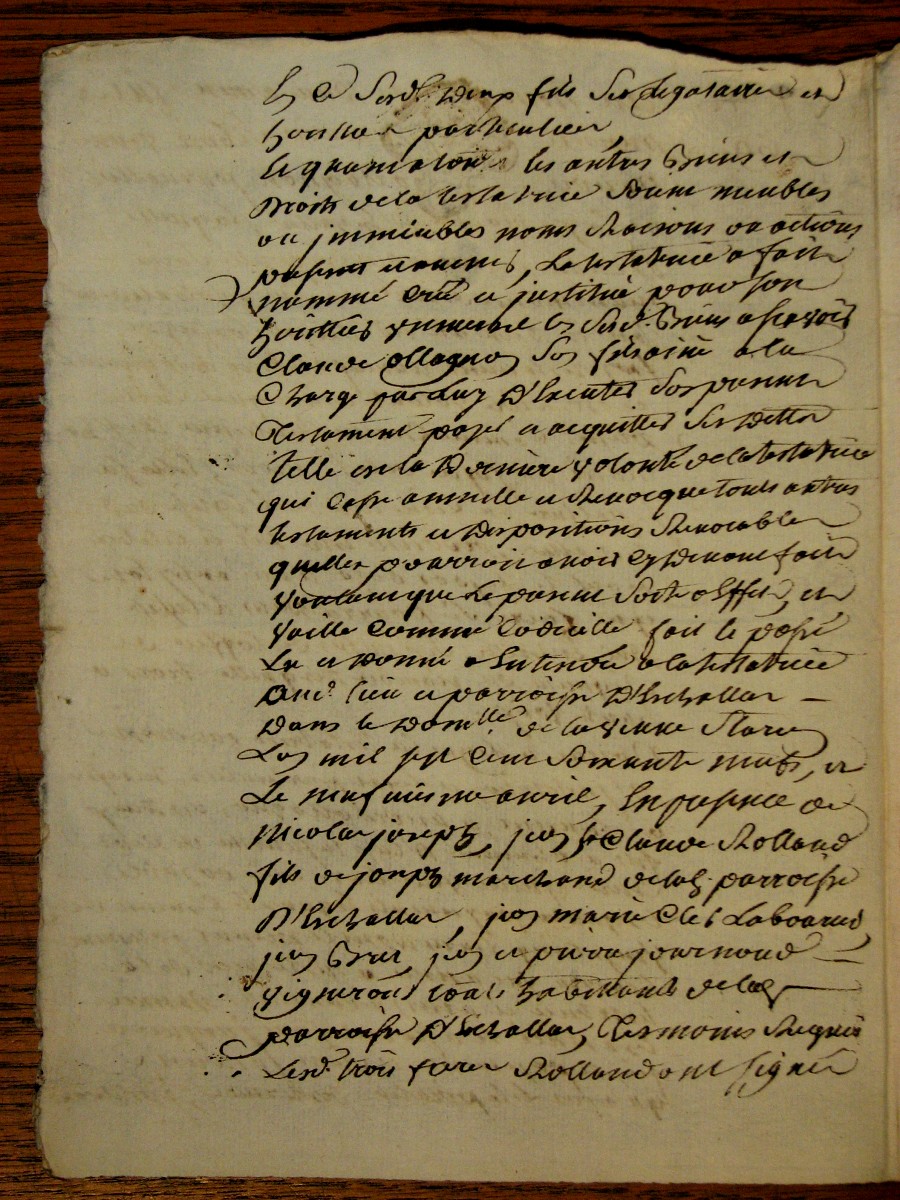 et ce sesd. deux fils ses legataires et
heritiers particuliers
Et quand a tous les autres biens et
droits de la testatrice soint meubles
ou jmmeubles noms raisons ou actions
presents et avenirs, La testatrice a fait
nommé créé et justitué pour son
heritier de sesd. biens a sçavoir
Claude ollagnon son fils ainé a la
Charge par luy d'executer son present
Testament payer et acquitter ses dettes
telle est la derniere volonté de la testatrice
qui casse annulle et revocque touts autres
testaments et dispositions revocables
quelle pourroit avoir cydevant fait
voulant que le present sorte effet, et
vaille comme codicille fait lu
Lu et donné a entendre a la testatrice
aud. lieu et parroisse d'Echallas
dans le domlle. de la veuve
Lan mil sept cent soixante neuf, et
Le avril, En presence de
nicolas joseph, jean & Claude Rolland
fils de joseph marchand de lad. parroisse
d'Echallas, jean marie
jean et pierre journoud
vignerons touts habitants de lad.
parroisse d'Echallas Tesmoins Requis
Lesd. trois freres Rolland ont signé